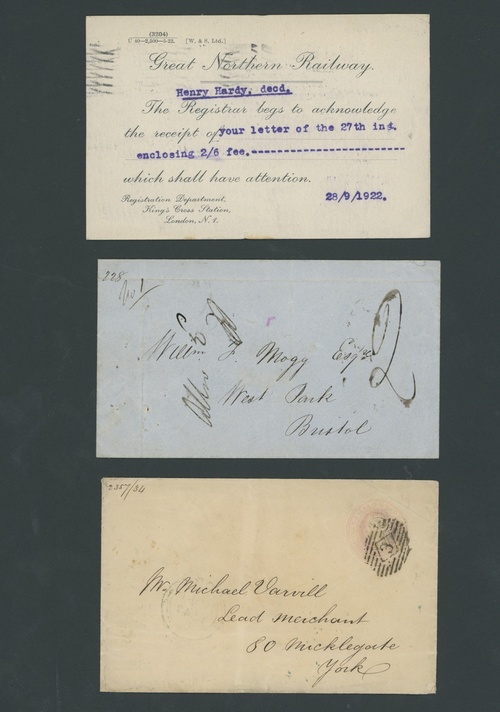 (3204)
C 40—2,500—5-22. [W. & S. Ltd.]
Great Northern Railway.
Henry Hardy, decd.
The Registrar begs to acknowledge
the receipt of your letter of the 27th ins.
enclosing 2/6 fee.
which shall have attention.
Registration Department,
King's Cross Station,
London, N.1.
28/9/1922.
228
No 1
2
Willm F. Mogg Esqre
West Park
Bristol
2357/34
Mr. Michael Varvill
Lead Merchant
80 Micklegate
York